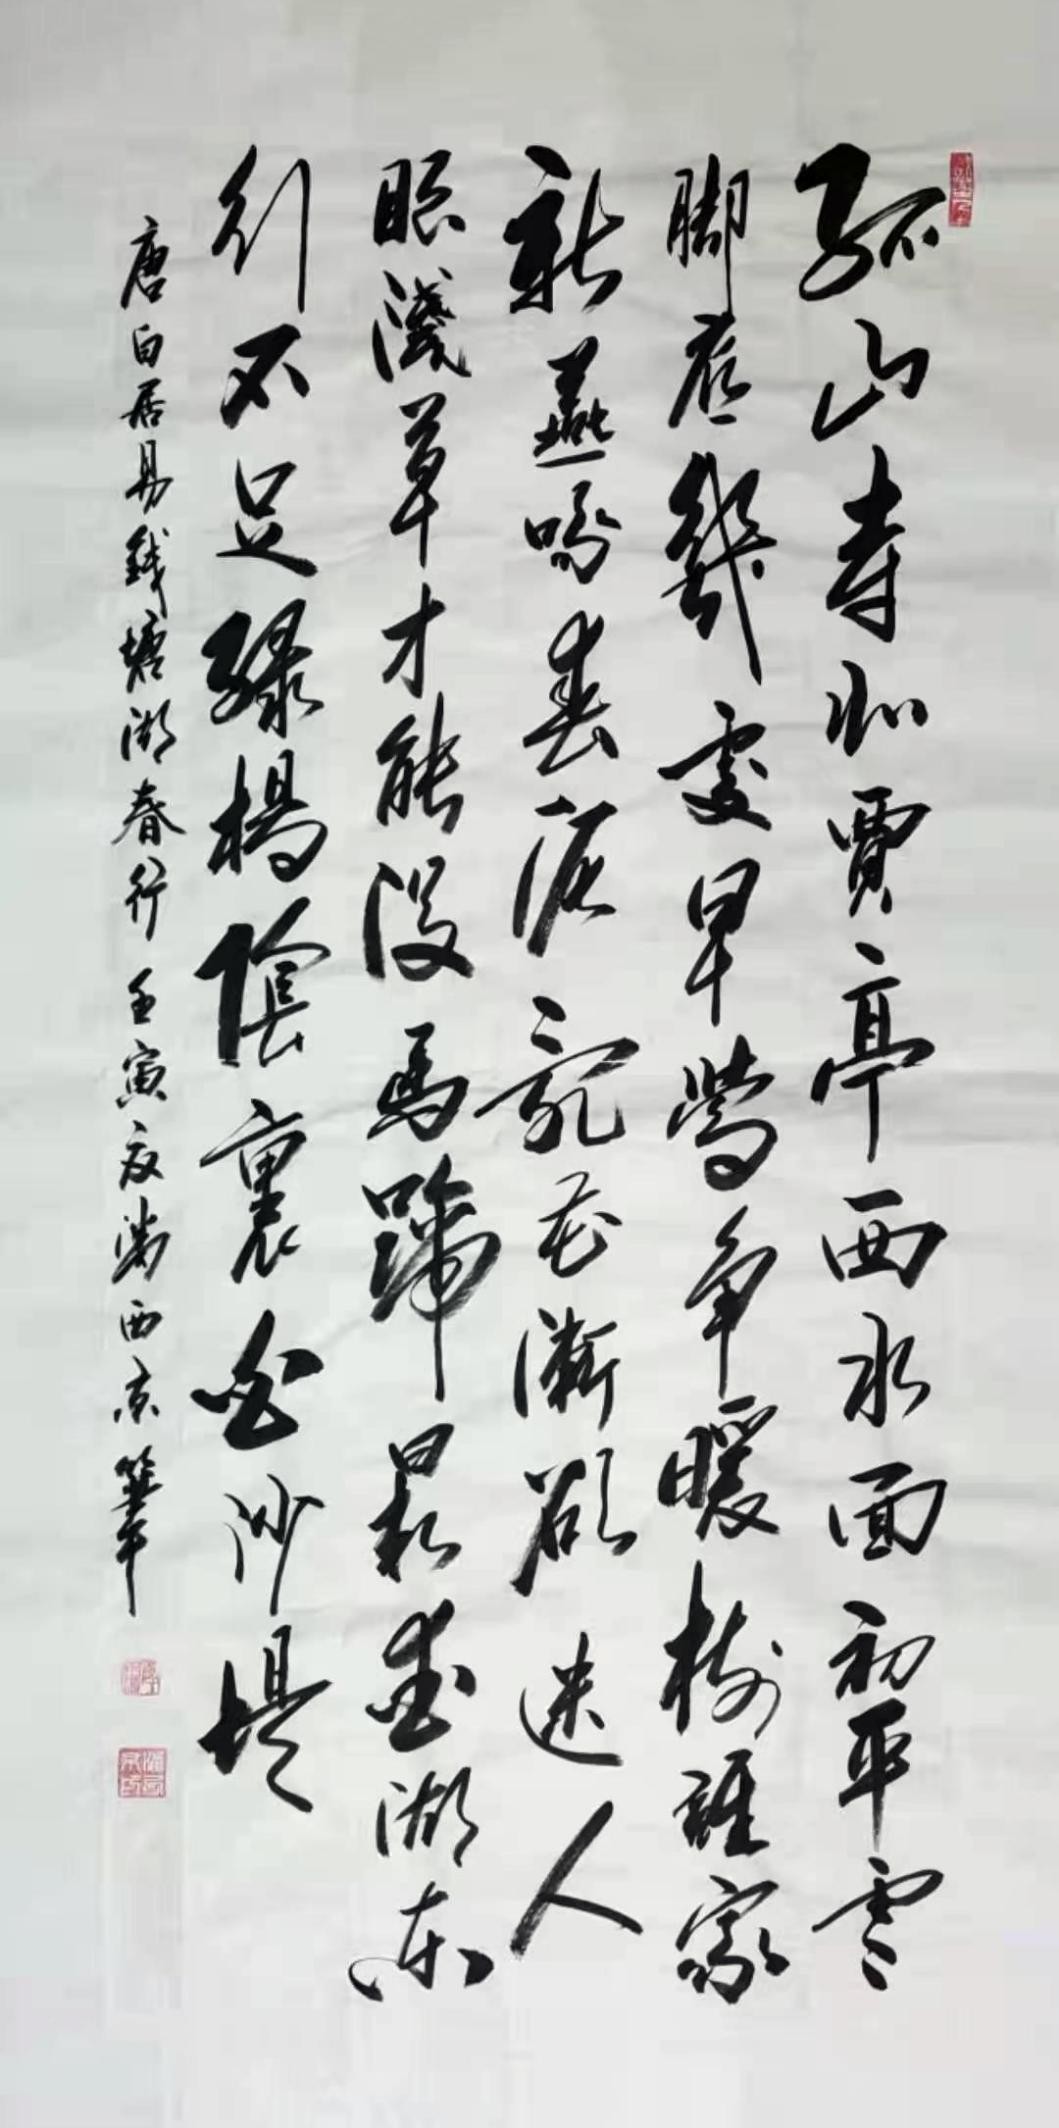 孤山寺北賈亭西水面初平雲
脚底幾處早鶯争暖樹誰家
新燕啄春泥亂花漸欲迷人
眼淺草才能没馬蹄最愛湖東
行不足緑楊陰裏白沙堤
唐白居易錢塘湖春行 壬寅夜满西京 華